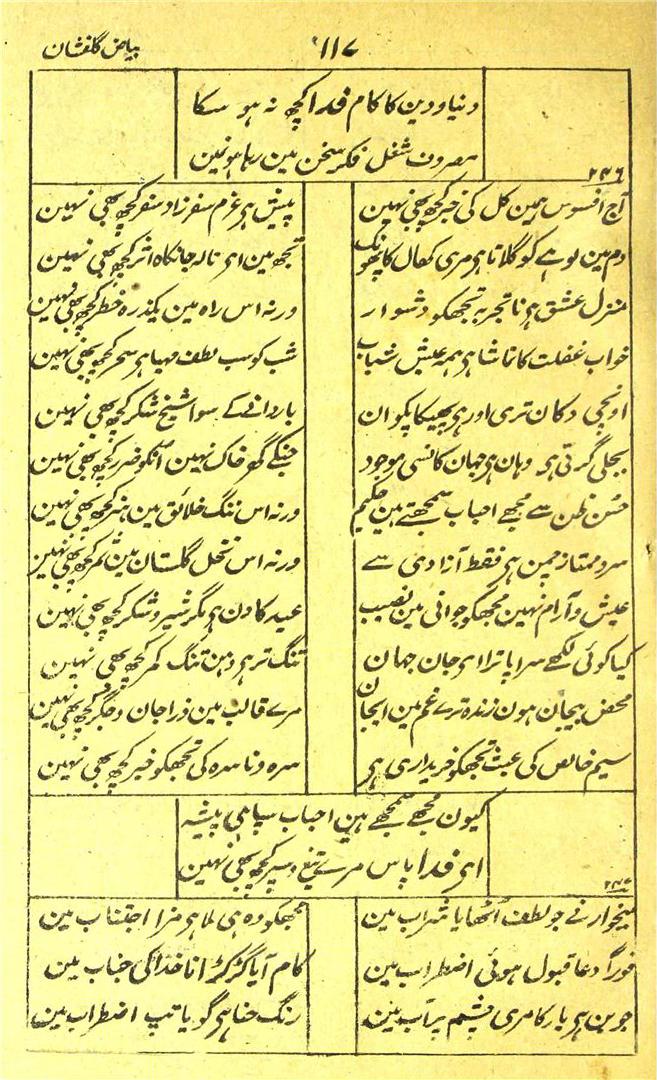 بیاض گلفشان
۱۱۷
دنیا و دین کا کام فدا کچھ نہ ہو سکا
مصروف شغل فکر سخن مین رہا ہونمین
۲۴۶
آج افسوس ہمین کل کی خبر کچھ بھی نہین
پیش ہی عزم سفر زاد سفر کچھ بھی نہین
دم مین لوہے کو گلاتا ہی مری کھال کا پھونک
تجھ مین ای نالہ جانکاہ اثر کچھ بھی نہین
منزل عشق ہی نا تجربہ تجھکو دشوار
ورنہ اس راہ مین یکذرہ خطر کچھ بھی نہین
خواب غفلت کا تماشا ہی ہمہ عیش شباب
شب کو سب لطف مہیا ہی سحر کچھ بھی نہین
اونچی دکان تری اور ہی پھیکا پکوان
بار دانے کے سوا شیخ شکر کچھ بھی نہین
بجلی گرتی ہی وہان ہی جہان کانسی موجود
جنکے گھر خاک نہین انکو ضرر کچھ بھی نہین
حسن ظن سے مجھے احباب سمجھتے ہین حکیم
ورنہ اس ننگ خلائق مین ہنر کچھ بھی نہین
سرو ممتاز چمن ہی فقط آزادی سے
ورنہ اس نخل گلستان مین ثمر کچھ بھی نہین
عیش و آرام نہین مجھکو جوانی مین نصیب
عید کا دن ہی مگر شیر و شکر کچھ بھی نہین
کیا کوئی لکھے سراپا ترا ای جان جہان
تنگ تر ہی دہن تنگ کمر کچھ بھی نہین
محض بیجان ہون زندہ ترے غم مین ایجان
مرے قالب مین ذرا جان و جگر کچھ بھی نہین
سیم خالص کی عبث تجھکو خریداری ہی
سرہ و ناسرہ کی تجھکو خبر کچھ بھی نہین
کیون مجھے سمجھے ہین احباب سپاہی پیشہ
ای فدا پاس مرے تیغ و سپر کچھ بھی نہین
۲۴۷
میخوار نے جو لطف اٹھایا شراب مین
مجھکو وہ ہی ملا ہی مزا اجتناب مین
فوراً دعا قبول ہوئی اضطراب مین
کام آیا گڑگڑانا خدا کی جناب مین
جوبن ہی یار کا مری چشم پر آب مین
رنگ حنا ہی گویا تپ اضطراب مین